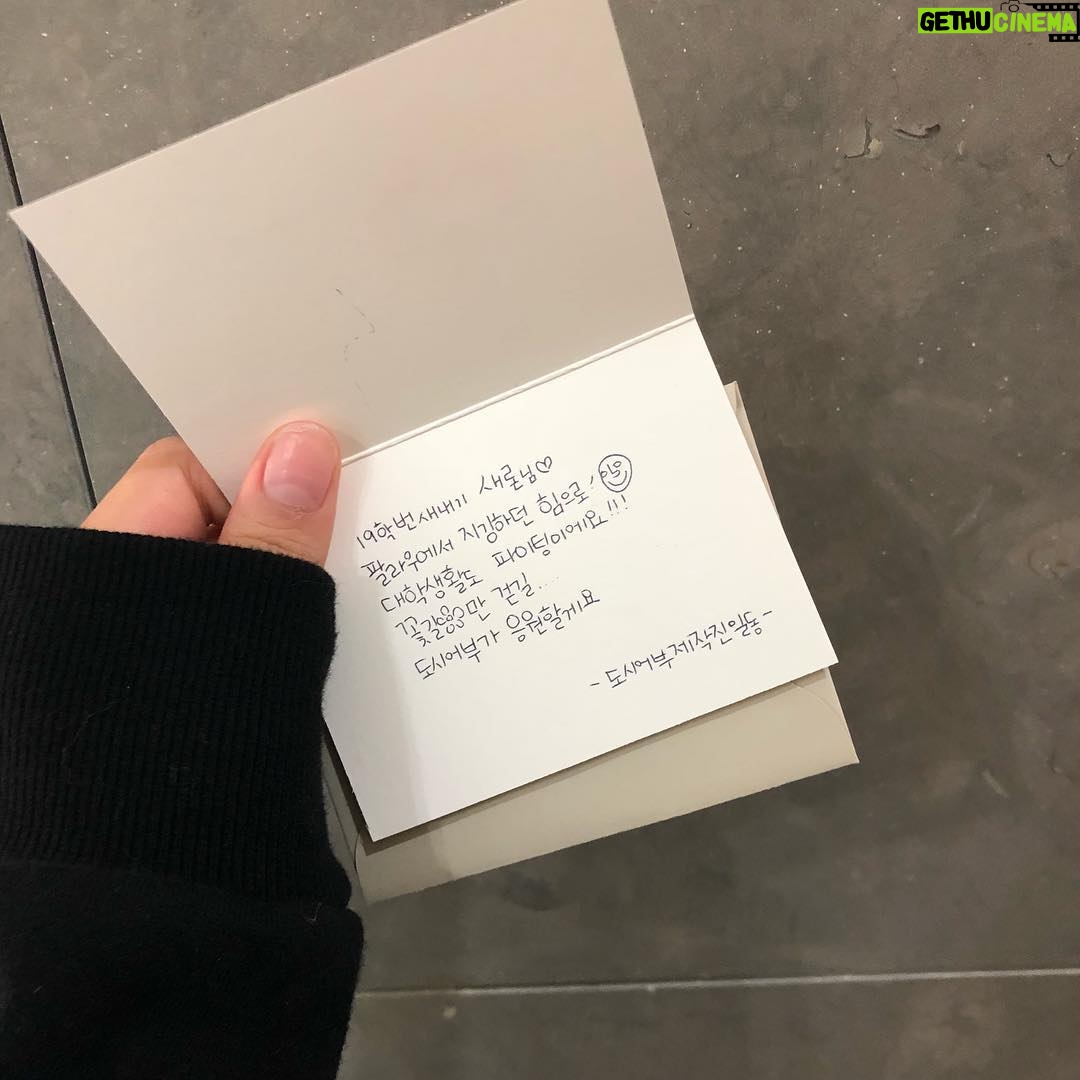 GETHUCINEMA
19학번새내기 새론님♡
팔라우에서 지깅하던 힘으로!
대학생활도 파이팅이에요!!!
꽃길만 걷길....
도시어부가 응원할게요
- 도시어부제작진일동-